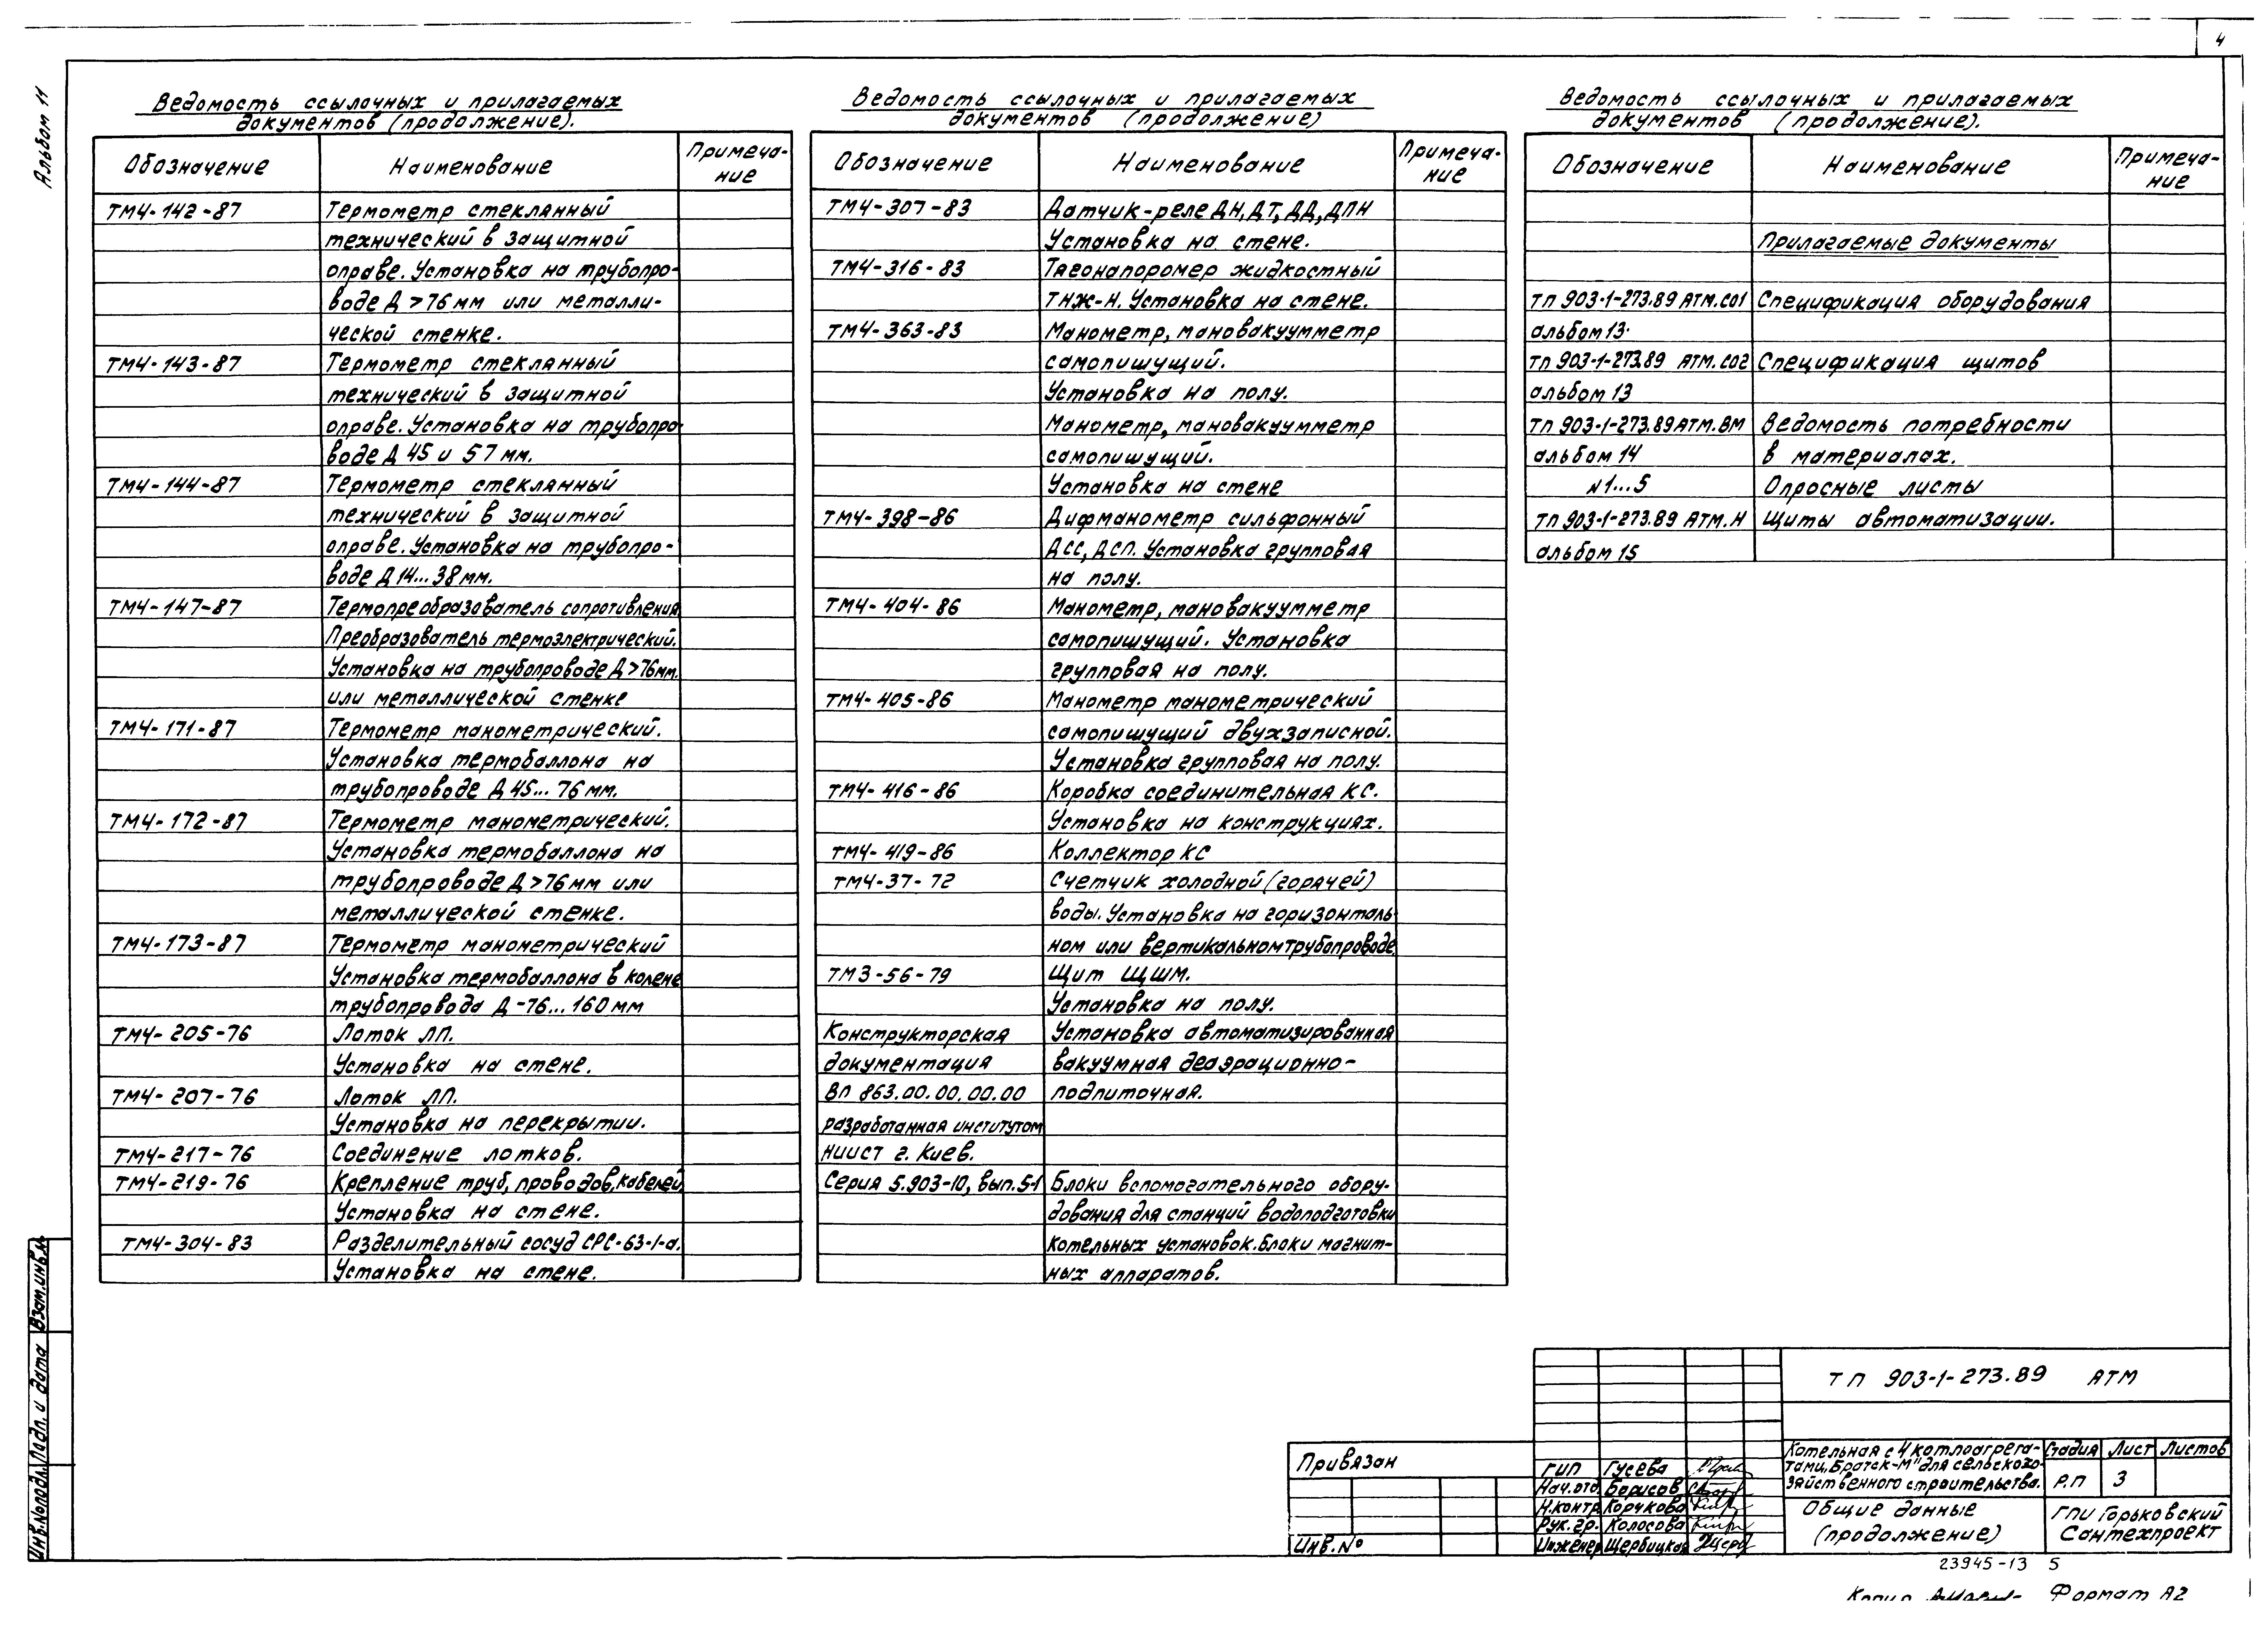 4
Альбом 11
Ведомость ссылочных и прилагаемых
документов (продолжение).
Обозначение Наименование Примеча-
ние
ТМ4-142-87 Термометр стеклянный
технический в защитной
оправе. Установка на трубопро-
воде Д >76мм или металли-
ческой стенке.
ТМ4-143-87 Термометр стеклянный
технический в защитной
оправе. Установка на трубопро-
воде Д 45 и 57мм.
ТМ4-144-87 Термометр стеклянный
технический в защитной
оправе. Установка на трубопро-
воде Д 14...38мм.
ТМ4-147-87 Термопреобразователь сопротивления
Преобразователь термоэлектрический.
Установка на трубопроводе Д >76мм.
или металлической стенке
ТМ4-171-87 Термометр манометрический.
Установка термобаллона на
трубопроводе Д 45...76мм.
ТМ4-172-87 Термометр манометрический.
Установка термобаллона на
трубопроводе Д >76мм или
металлической стенке.
ТМ4-173-87 Термометр манометрический
Установка термобаллона в колене
трубопровода Д-76...160мм
ТМ4-205-76 Лоток ЛП.
Установка на стене.
ТМ4-207-76 Лоток ЛП.
Установка на перекрытии.
ТМ4-217-76 Соединение лотков.
ТМ4-219-76 Крепление труб, проводов, кабелей
Установка на стене.
ТМ4-304-83 Разделительный сосуд СРС-63-1-а.
Установка на стене.
Ведомость ссылочных и прилагаемых
документов (продолжение)
Обозначение Наименование Примеча-
ние
ТМ4-307-83 Датчик-реле ДН, ДТ, ДД, ДПН
Установка на стене.
ТМ4-316-83 Тягонапоромер жидкостный
ТНЖ-Н. Установка на стене.
ТМ4-363-83 Манометр, мановакуумметр
самопишущий.
Установка на полу.
Манометр, мановакуумметр
самопишущий.
Установка на стене
ТМ4-398-86 Дифманометр сильфонный
ДСС, ДСП. Установка групповая
на полу.
ТМ4-404-86 Манометр, мановакуумметр
самопишущий. Установка
групповая на полу.
ТМ4-405-86 Манометр манометрический
самопишущий двухзаписной.
Установка групповая на полу.
ТМ4-416-86 Коробка соединительная КС.
Установка на конструкциях.
ТМ4-419-86 Коллектор КС
ТМ4-37-72 Счетчик холодной (горячей)
воды. Установка на горизонталь-
ном или вертикальном трубопроводе
ТМ3-56-79 Щит ЩШМ.
Установка на полу.
Конструкторская Установка автоматизированная
документация вакуумная деаэрационно-
ВП 863.00.00.00.00 подпиточная.
разработанная институтом
НИИСТ г. Киев.
Серия 5.903-10, вып.5-1 Блоки вспомогательного обору-
дования для станций водоподготовки
котельных установок. Блоки магнит-
ных аппаратов.
Ведомость ссылочных и прилагаемых
документов (продолжение).
Обозначение Наименование Примеча-
ние
Прилагаемые документы
ТП 903-1-273.89 АТМ.СО1 Спецификация оборудования
альбом 13.
ТП 903-1-273.89 АТМ.СО2 Спецификация щитов
альбом 13
ТП 903-1-273.89 АТМ.ВМ Ведомость потребности
альбом 14 в материалах.
№1...5 Опросные листы
ТП 903-1-273.89 АТМ.Н Щиты автоматизации.
альбом 15
Взам.инв.№
Подп. и дата
Инв.№подл.
ТП 903-1-273.89 АТМ
Привязан
Инв.№
ГИП Гусева
Нач.отд. Борисов
Н.контр. Корчкова
Рук.гр. Колосова
Инженер Щербицкая
Котельная с 4 котлоагрега-
тами „Братск-М" для сельскохо-
зяйственного строительства.
Стадия Лист Листов
Р.П 3
Общие данные
(продолжение)
ГПИ Горьковский
Сантехпроект
23945-13 5
Формат А2